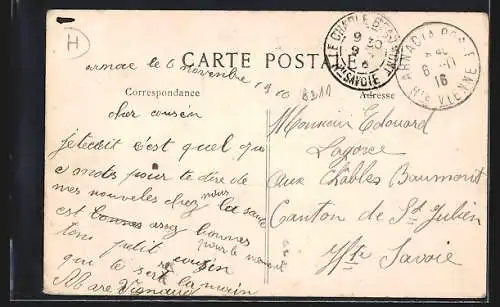 H
CARTE POSTALE
LE CHABLE B
9 30
9
16
Hte SAVOIE
ARNAC LA POSTE
6 -11
16
Hte VIENNE
arnac le 6 novembre 1916
Correspondance
Adresse
cher cousin
je tecrit c'est quel que
mots pour te dire de
mes nouvelles chez nous la santé
est bonnes assez bonnes
pour le moment
ton petit cousin
qui te sert la main
Marc Vignaud
Monsieur Edouard
Lagorce
aux Chables Baumont
Canton de St Julien
Hte Savoie